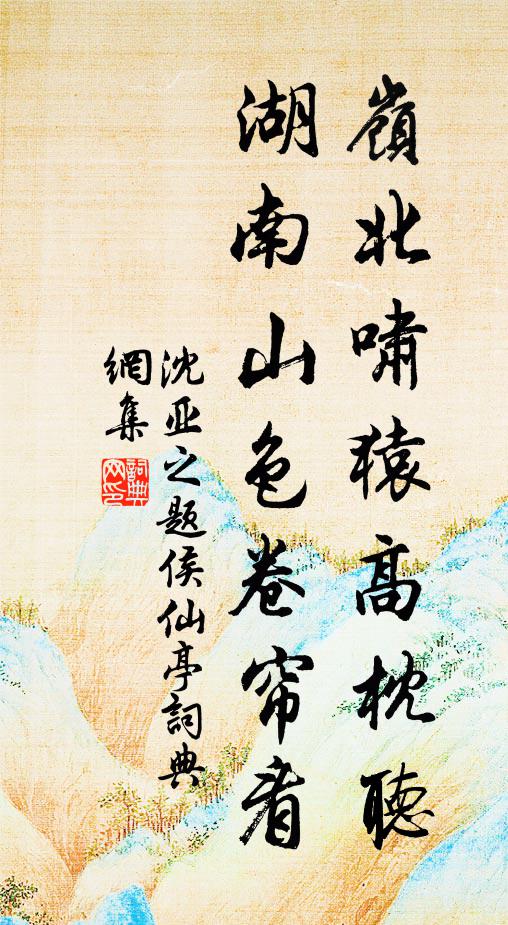 嶺北嘯猿高枕聽
湖南山色卷帘看
沈亚之题侯仙亭詞典
網集
詞典网印